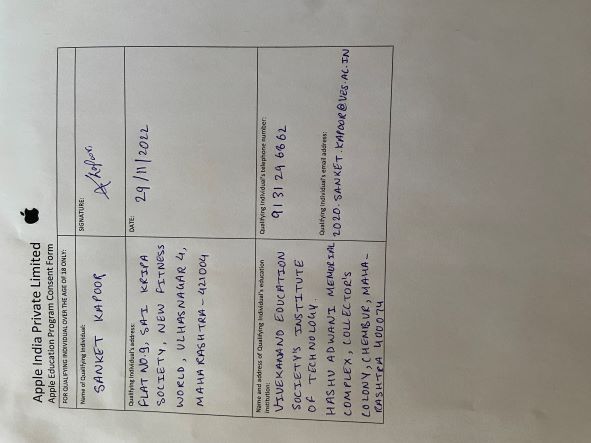 Apple India Private Limited
Apple Education Program Consent Form
FOR QUALIFYING INDIVIDUAL OVER THE AGE OF 18 ONLY:
Name of Qualifying Individual:
SANKET KAPOOR
SIGNATURE:
Qualifying Individual's address:
FLAT NO.9, SAI KRIPA
SOCIETY, NEW FITNESS
WORLD, ULHASNAGAR 4,
MAHARASHTRA - 421004
DATE:
29/11/2022
Name and address of Qualifying Individual's education
institution:
VIVEKANAND EDUCATION
SOCIETY'S INSTITUTE
OF TECHNOLOGY.
HASHU ADWANI MEMORIAL
COMPLEX, COLLECTOR'S
COLONY, CHEMBUR, MAHA-
RASHTRA 400074
Qualifying Individual's telephone number:
9131296862
Qualifying Individual's email address:
2020.SANKET.KAPOOR@VES.AC.IN